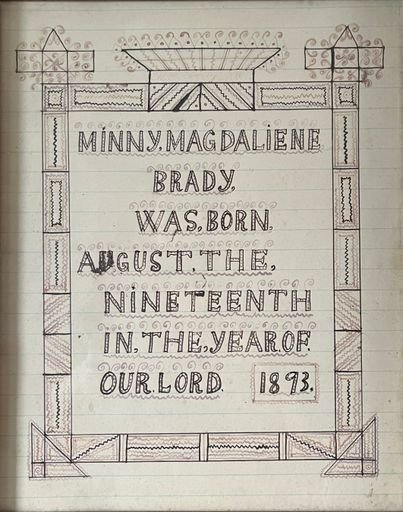 MINNY, MAGDALIENE
BRADY,
WAS, BORN,
AUGUST, THE,
NINETEENTH
IN, THE, YEAR OF
OUR LORD. 1893.